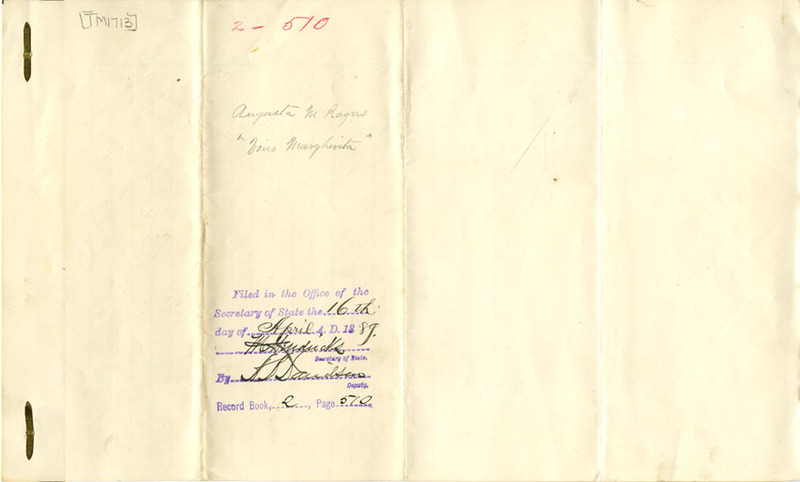 [TM1713]
2 - 510
Augusta M Rogers
"Vino Margherita"
Filed in the Office of the
Secretary of State the 16th
day of April A. D. 1889.
Secretary of State.
By
Deputy.
Record Book, 2, Page 510